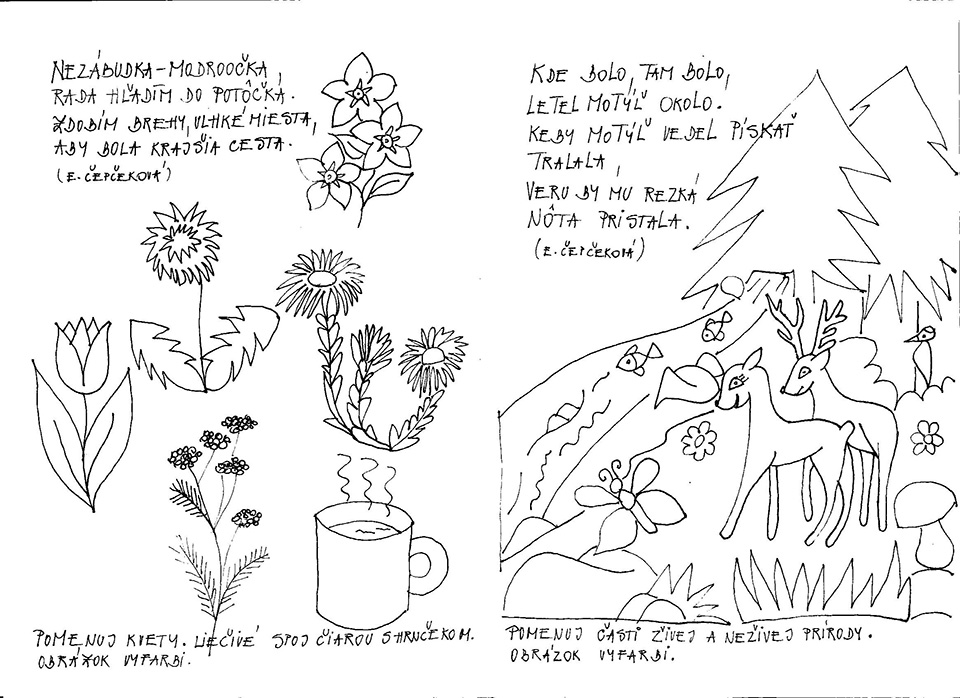 NEZÁBUDKA-MODROOČKA,
RADA HĽADÍM DO POTÔČKA.
ZDOBÍM BREHY, VLHKÉ MIESTA,
ABY BOLA KRAJŠIA CESTA.
(E. ČEPČEKOVÁ)
POMENUJ KVETY. LIEČIVÉ SPOJ ČIAROU S HRNČEKOM.
OBRÁZOK VYFARBI.
KDE BOLO, TAM BOLO,
LETEL MOTÝĽ OKOLO.
KEBY MOTÝĽ VEDEL PÍSKAŤ
TRALALA,
VERU BY MU REZKÁ
NÔTA PRISTALA.
(E. ČEPČEKOVÁ)
POMENUJ ČASTI ŽIVEJ A NEŽIVEJ PRÍRODY.
OBRÁZOK VYFARBI.